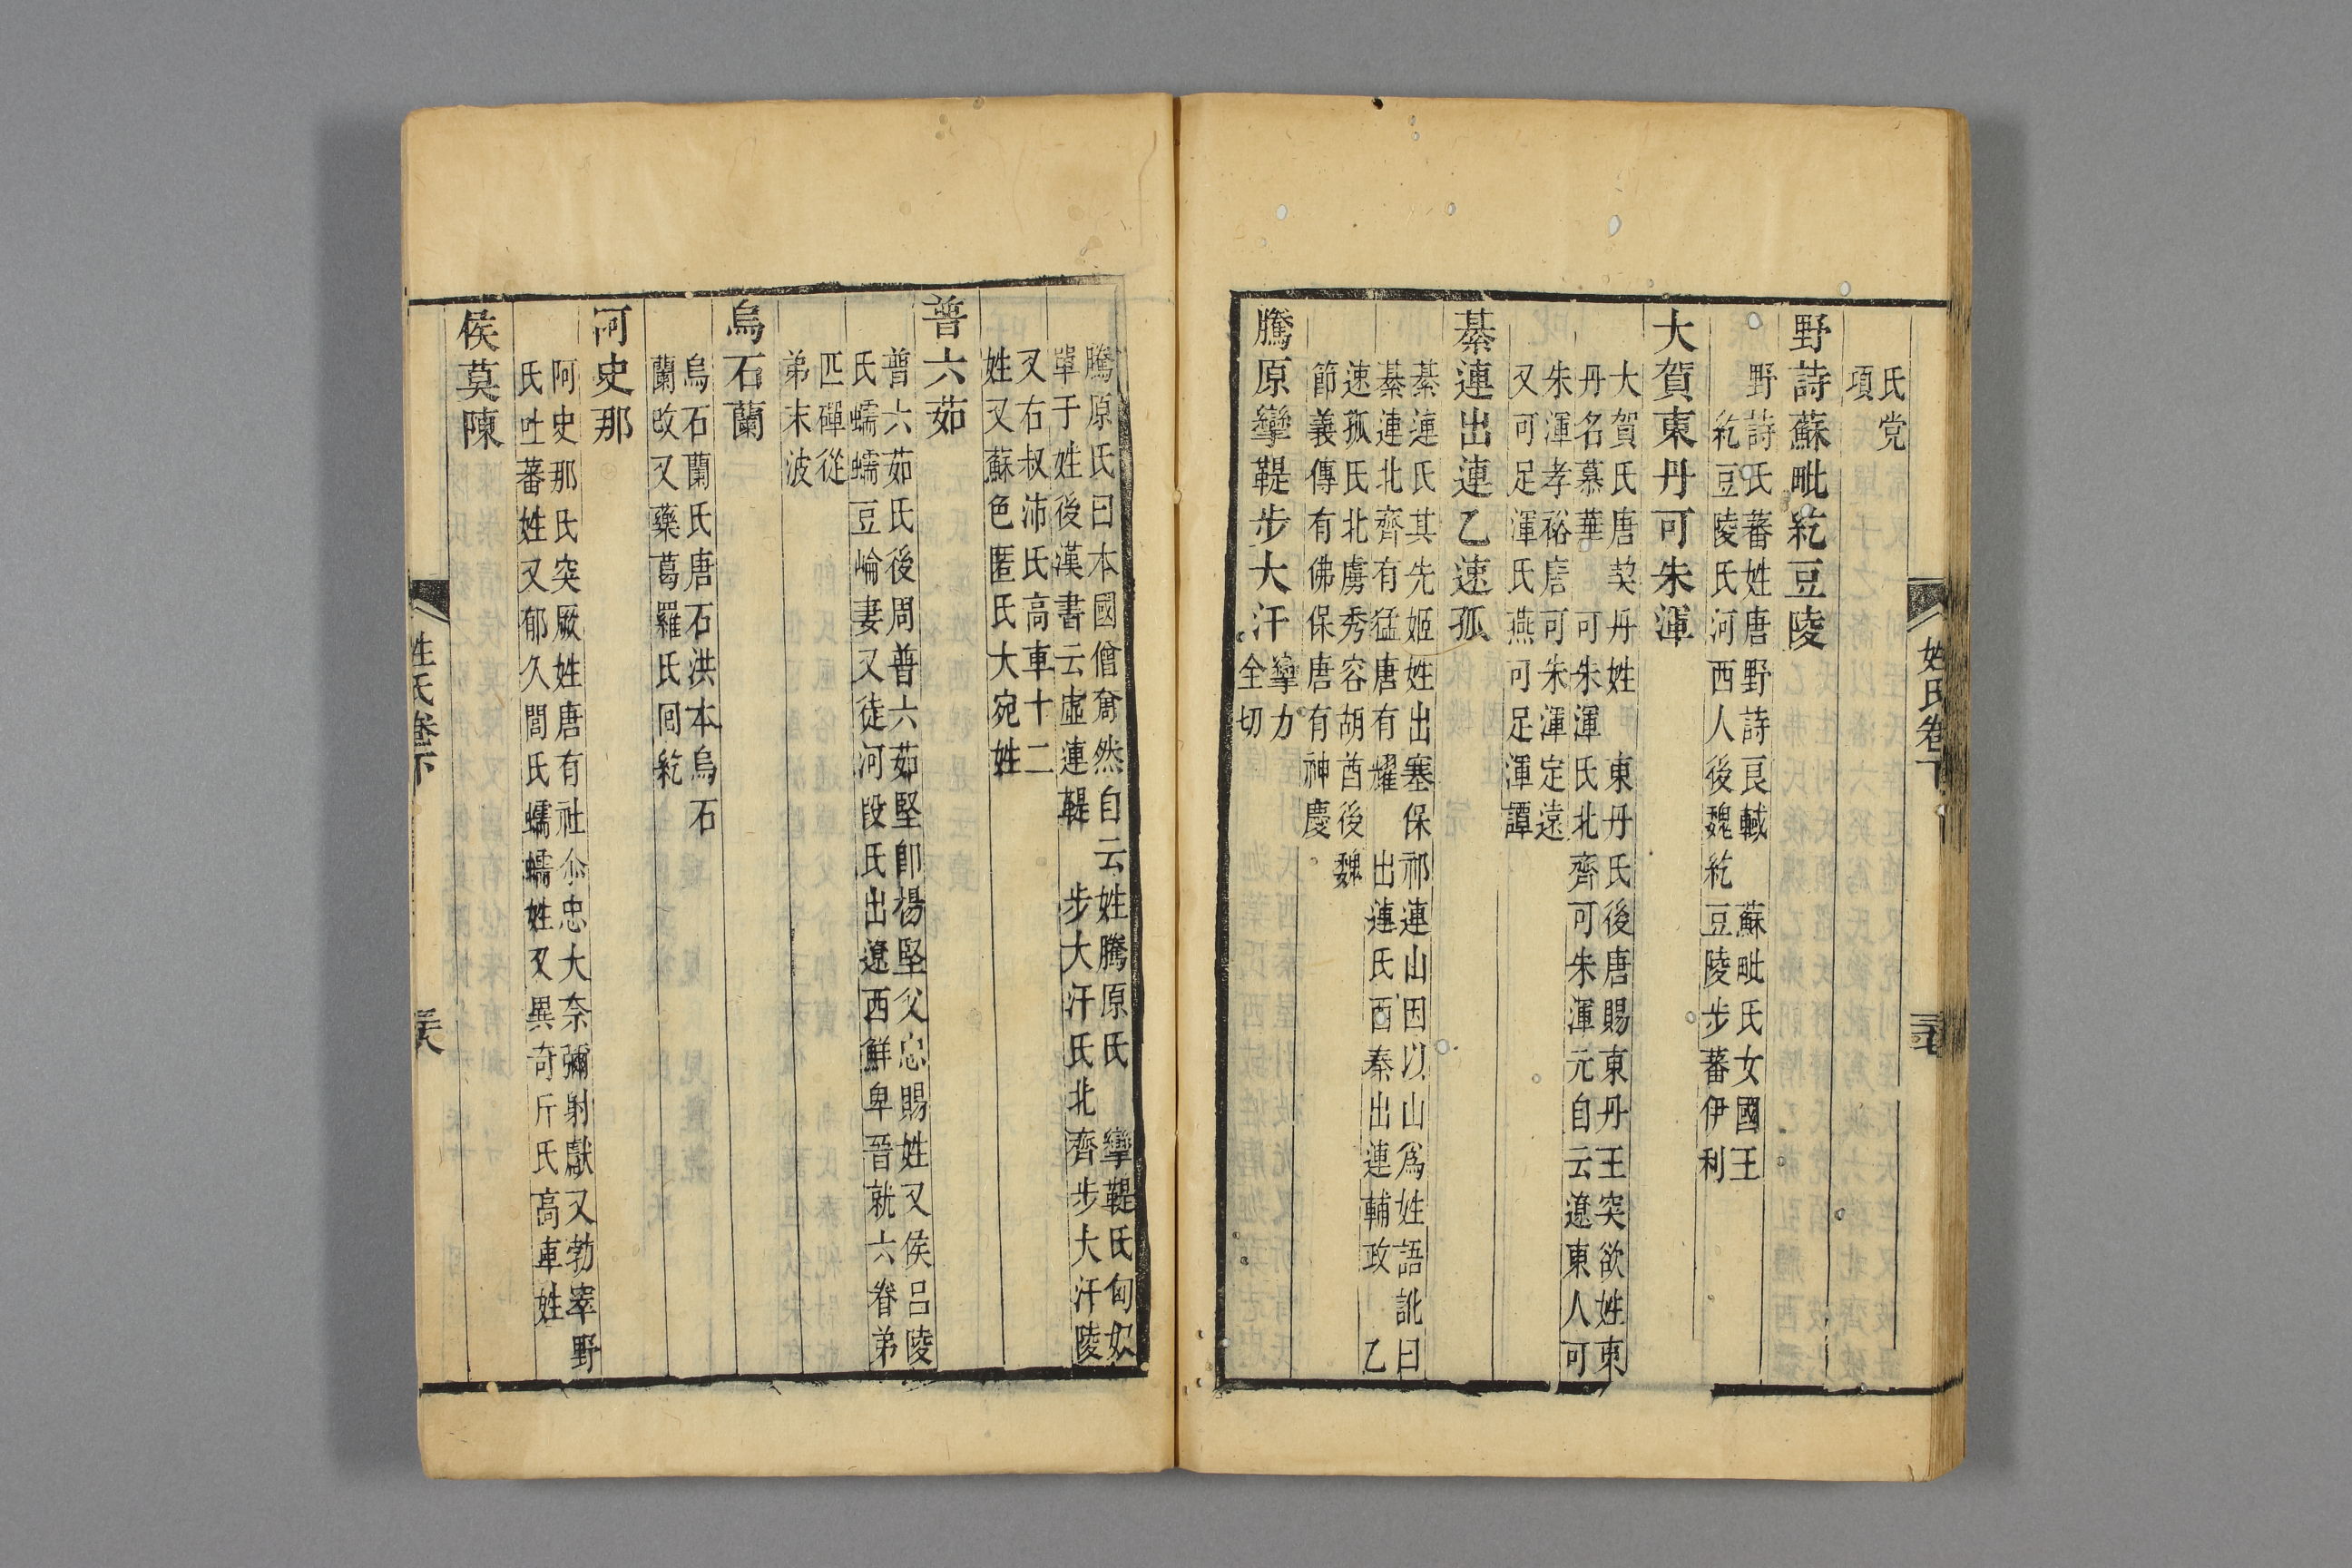 氏党
項
野詩蘇毗紇豆陵
野詩氏蕃姓唐野詩良輔　蘇毗氏女國王
紇豆陵氏河西人後魏紇豆陵步蕃伊利
大賀東丹可朱渾
大賀氏唐契丹姓　東丹氏後唐賜東丹王突欲姓東
丹名慕華　可朱渾氏北齊可朱渾元自云遼東人可
朱渾孝裕唐可朱渾定遠
又可足渾氏燕可足渾譚
綦連出連乙速孤
綦連氏其先姬姓出塞保祁連山因以山爲姓語訛曰
綦連北齊有猛唐有耀　出連氏西秦出連輔政　乙
速孤氏北虜秀容胡酋後魏
節義傳有佛保唐有神慶
騰原攣鞮步大汗　攣力
全切
姓氏卷下
三七
騰原氏日本國僧奝然自云姓騰原氏　攣鞮氏匈奴
單于姓後漢書云虛連鞮　步大汗氏北齊步大汗陵
又右叔沛氏高車十二
姓又蘇色匿氏大宛姓
普六茹
普六茹氏後周普六茹堅卽楊堅父忠賜姓又侯呂陵
氏蠕蠕豆崘妻又徒河段氏出遼西鮮卑晉就六眷弟
匹磾從
弟末波
烏石蘭
烏石蘭氏唐石洪本烏石
蘭改又藥葛羅氏囘紇
阿史那
阿史那氏突厥姓唐有社尒忠大奈彌射獻又勃窣野
氏吐蕃姓又郁久閭氏蠕蠕姓又異奇斤氏高車姓
侯莫陳
姓氏卷下
三六